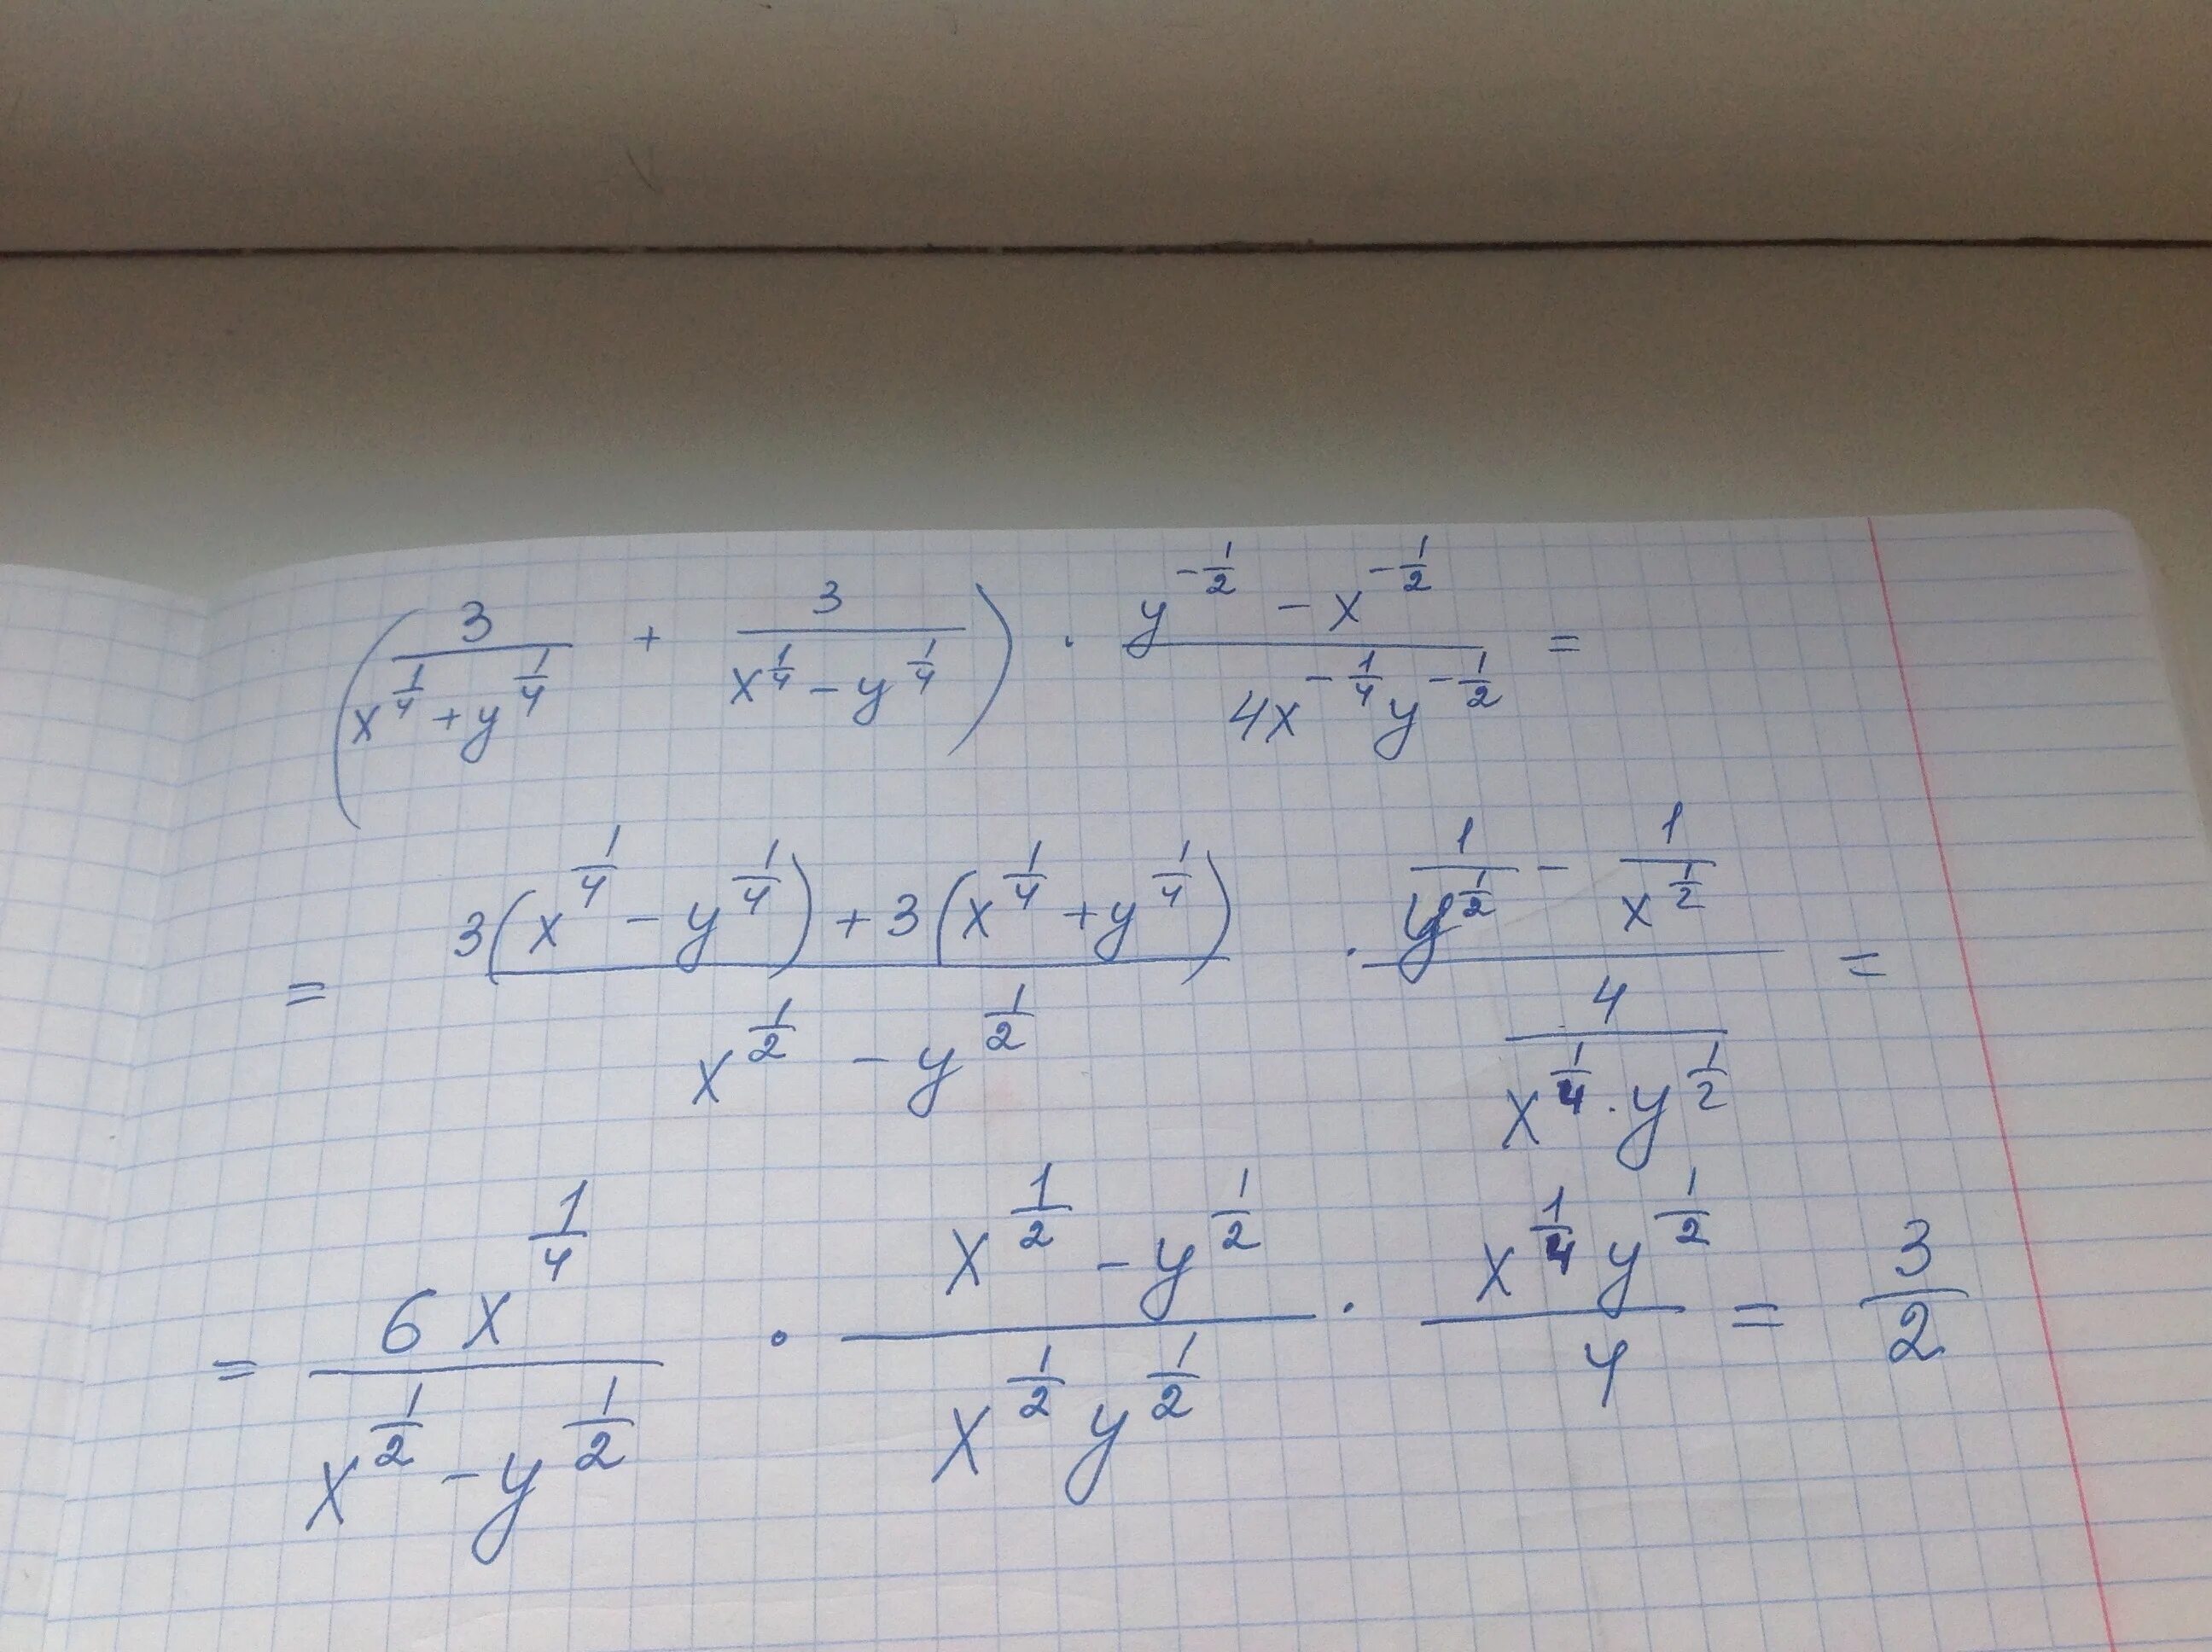 (3/(x^(1/4) + y^(1/4)) + 3/(x^(1/4) - y^(1/4))) · (y^(-1/2) - x^(-1/2))/(4x^(-1/4) y^(-1/2)) =
= (3(x^(1/4) - y^(1/4)) + 3(x^(1/4) + y^(1/4)))/(x^(1/2) - y^(1/2)) · (1/y^(1/2) - 1/x^(1/2))/(4/(x^(1/4) · y^(1/2))) =
= 6x^(1/4)/(x^(1/2) - y^(1/2)) · (x^(1/2) - y^(1/2))/(x^(1/2) y^(1/2)) · (x^(1/4) y^(1/2))/4 = 3/2